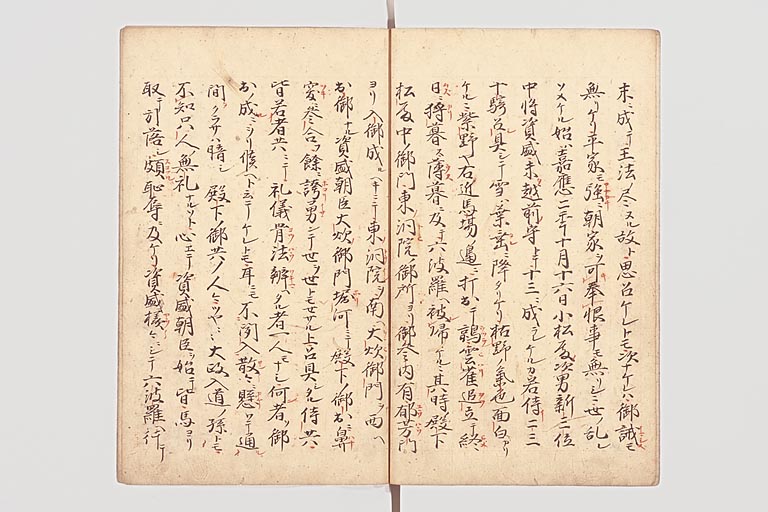 末ニ成テ王法ノ尽ヌル故ト思召ケレトモ次ナケレハ御誡モ
無リケリ平家モ強ニ朝家ヲ可奉恨事モ無リシニ世ノ乱レ
ソメケル始ハ嘉應二年十月十六日小松殿次男新三位
中将資盛未越前守トテ十三ニ成ラレケルカ若侍二三
十騎召具シテ雪ハ葉雪ニ降タリケリ枯野ノ氣色面白カリ
ケルニ紫野ヤ右近馬場ノ邊ニ打出テ鶉雲雀追立テ終
日ニ狩暮ス薄暮ニ及テ六波羅ヘ被帰ケルニ其時殿下
松殿中御門東洞院ノ御所ヨリ御参内有郁芳門
ヨリ入御成ヘキニテ東洞院ヲ南ヘ大炊御門ヲ西ヘ
御出ナル資盛朝臣大炊御門堀河ニテ殿下ノ御出ニ鼻
突ニ参合フ餘ニ誇勇シテ世ヲ世トモセサル上召具シタル侍共
皆若者共ニテ礼儀骨法辨ヘタル者一人モナシ何者ソ御
出ノ成ニヲリ候ヘト云テケレトモ耳ニモ不聞入散々ニ懸ワテ通
間クラサハ暗シ殿下ノ御共ノ人々ツヤ々大政入道ノ孫トモ
不知只人ノ無礼ナルソト心エテ資盛朝臣ヲ始テ皆馬ヨリ
取テ引落シ頗恥辱ニ及ケリ資盛様々ニシテ六波羅ヘ行テ